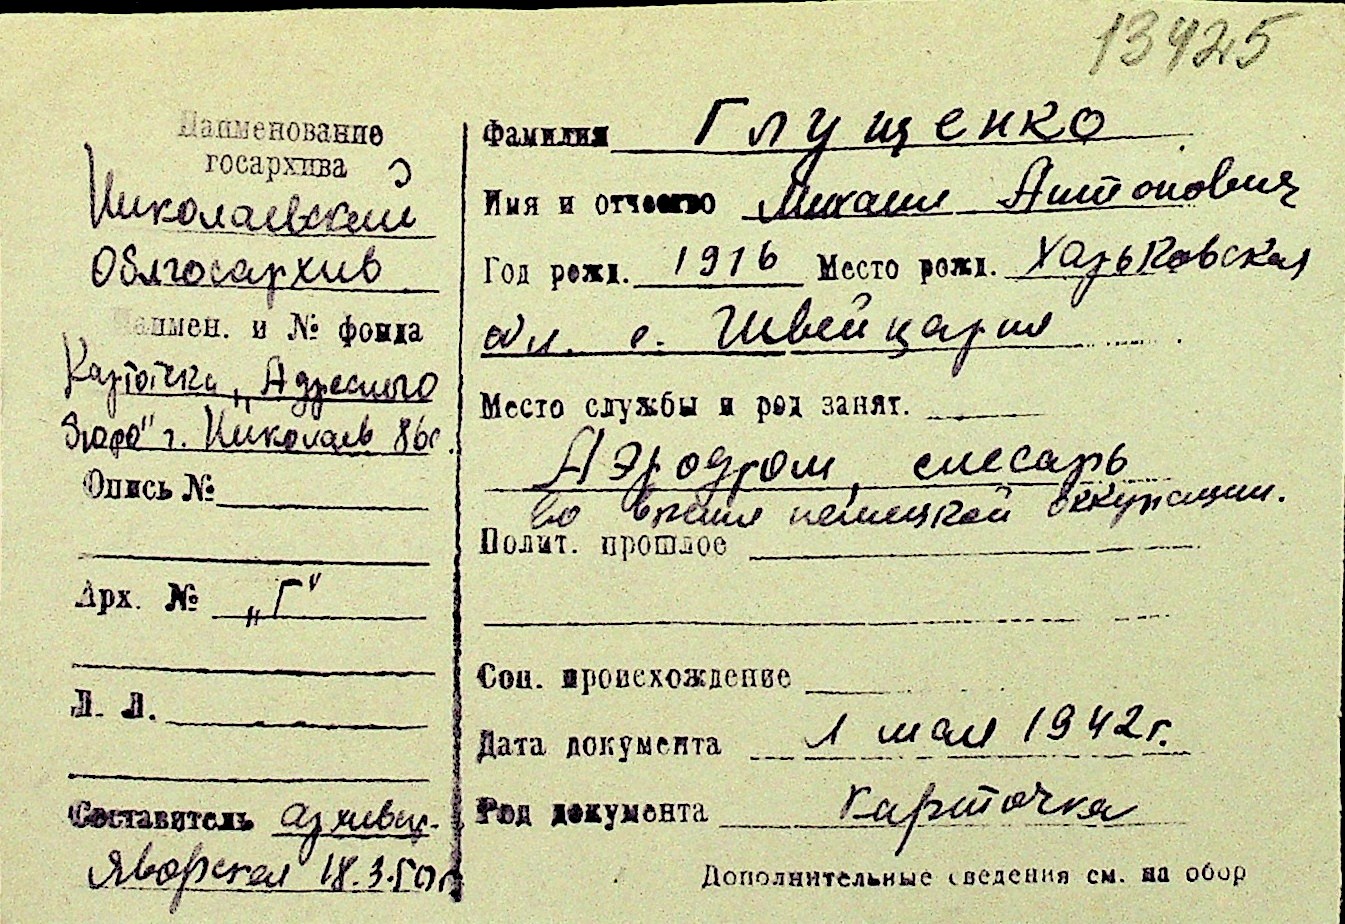 13425
Наименование
госархива
Николаевский
Облгосархив
Наимен. и № фонда
Картотека „Адресного
бюро" г. Николаев
Опись №
Арх. № „Г"
Л. Л.
Составитель архивар.
Яворская 18.3.50 г.
Фамилия Глущенко
Имя и отчество Михаил Антонович
Год рожд. 1916 Место рожд. Харьковская
обл. с. Швейцария
Место службы и род занят.
Аэродром, слесарь
во время немецкой оккупации.
Полит. прошлое
Соц. происхождение
Дата документа 1 мая 1942 г.
Род документа карточка
Дополнительные сведения см. на обор